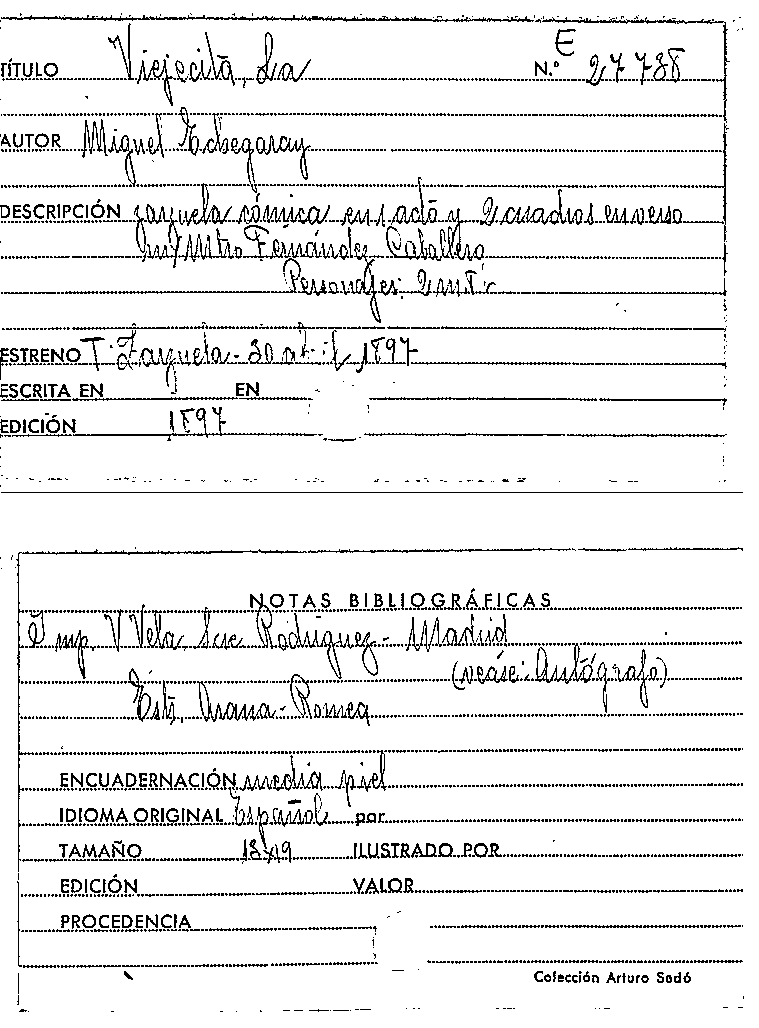 TÍTULO Viejecita, La N.º E 27738
AUTOR Miguel Echegaray
DESCRIPCIÓN zarzuela cómica en 1 acto y 2 cuadros en verso
Mtro Fernández Caballero
Personajes:
ESTRENO T. Zarzuela - 30 abril 1897
ESCRITA EN EN
EDICIÓN 1897
NOTAS BIBLIOGRÁFICAS
Imp. V Vela Suc Rodríguez - Madrid
(vease: Autógrafo)
Ests. Arana - Romea
ENCUADERNACIÓN media piel
IDIOMA ORIGINAL Español por
TAMAÑO 13x19 ILUSTRADO POR
EDICIÓN VALOR
PROCEDENCIA
Colección Arturo Sedó